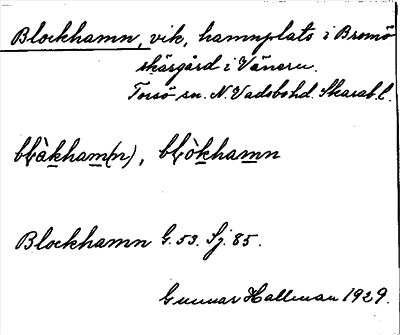 Blockhamn, vik, hamnplats i Bromö
skärgård i Vänern.
Torsö sn. N. Vadsbo hd. Skarab. l.
blàkham(n), blòkhamn
Blockhamn G. 53. Sj. 85.
Gunnar Hallman 1929.